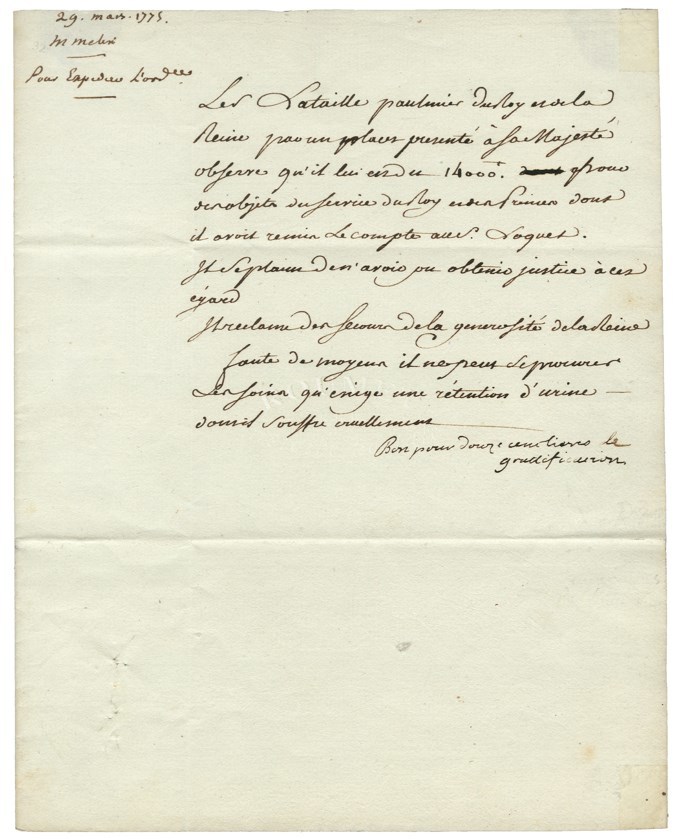 29. mars. 1775.
M melin
Pour Expedier L'ord.ce
Le S. Lataille paulmier du Roy et de la
Reine par un placet presenté à Sa Majesté
observe qu'il lui est du 14000.ᵗ pour
des objets du service du Roy et des Princes dont
il avoit remis le compte au S. Loquet.
Il se plaint de n'avoir pu obtenir justice à cet
égard
Il reclame des secours de la generosité de la Reine
faute de moyens il ne peut se procurer
Les soins qu'exige une rétention d'urine —
dont il souffre cruellement
Bon pour douze cent livres de
gratification